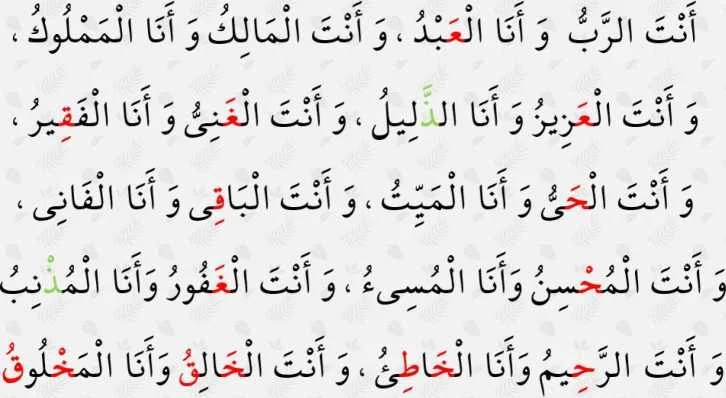 أَنْتَ الرَّبُّ وَ أَنَا الْعَبْدُ ، وَ أَنْتَ الْمَالِكُ وَ أَنَا الْمَمْلُوكُ ،
وَ أَنْتَ الْعَزِيزُ وَ أَنَا الذَّلِيلُ ، وَ أَنْتَ الْغَنِىُّ وَ أَنَا الْفَقِيرُ ،
وَ أَنْتَ الْحَىُّ وَ أَنَا الْمَيِّتُ ، وَ أَنْتَ الْبَاقِى وَ أَنَا الْفَانِى ،
وَ أَنْتَ الْمُحْسِنُ وَأَنَا الْمُسِىءُ ، وَ أَنْتَ الْغَفُورُ وَأَنَا الْمُذْنِبُ
وَ أَنْتَ الرَّحِيمُ وَأَنَا الْخَاطِئُ ، وَ أَنْتَ الْخَالِقُ وَأَنَا الْمَخْلُوقُ